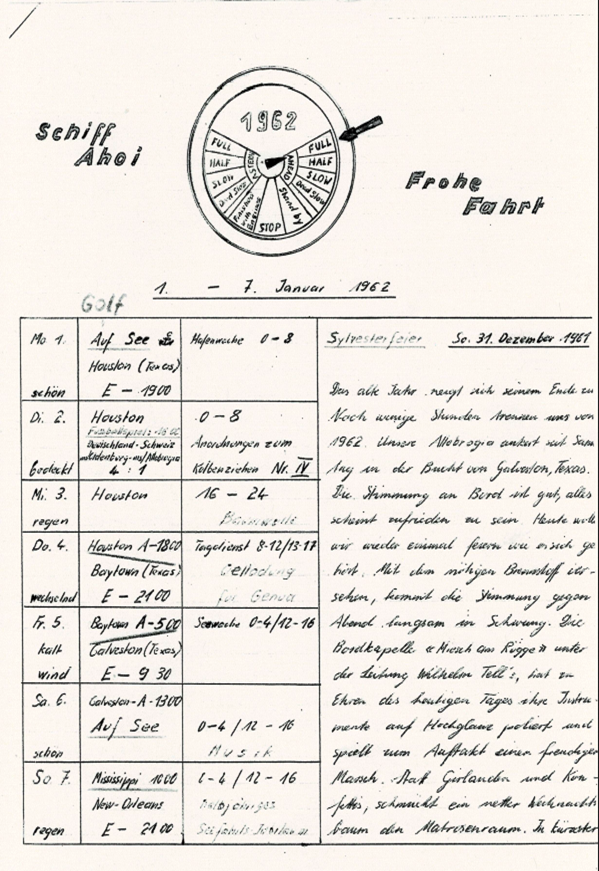 Schiff
Ahoi
1962
FULL
HALF
SLOW
Dead Slow
Finished
with
Engines
STOP
Stand by
Dead Slow
SLOW
HALF
FULL
ASTERN
AHEAD
Frohe
Fahrt
1. – 7. Januar 1962
Golf
Mo 1.
schön
Auf See
Houston (Texas)
E – 1900
Hafenwache 0-8
Di. 2.
bedeckt
Houston
Deutschland-Schweiz
4 : 1
0-8
Anordnungen zum
Kolbenziehen Nr. IV
Mi 3.
regen
Houston
16 – 24
Do. 4.
wechselnd
Houston A-1800
Baytown (Texas)
E – 2100
Tagdienst 8-12/13-17
Oelladung
für Genua
Fr. 5.
kalt
wind
Baytown A-500
Galveston (Texas)
E – 9 30
Seewache 0-4/12-16
Sa. 6.
schön
Galveston-A-1300
Auf See
0-4 / 12 – 16
Musik
So 7.
regen
Mississippi 1000
New-Orleans
E – 2100
0-4 / 12 – 16
Sylvesterfeier So. 31. Dezember 1961
Das alte Jahr neugt sich seinem Ende zu
Noch wenige Stunden trennen uns von
1962. Unsere Allobrogia ankert seit Sams
tag in der Bucht von Galveston, Texas.
Die Stimmung an Bord ist gut, alles
scheint zufrieden zu sein. Heute wollen
wir wieder einmal feiern wie es sich ge
hört. Mit dem nötigen Brennstoff ver-
sehen, kommt die Stimmung gegen
Abend langsam in Schwung. Die
Bordkapelle « Miesch am Rügge » unter
der Leitung Wilhelm Tell's, hat zu
Ehren des heutigen Tages ihre Instru-
mente auf Hochglanz poliert und
spielt zum Auftakt einen freudigen
Marsch. Statt Girlanden und Kon-
fettis, schmückt ein netter Weihnachts
baum den Matrosenraum. In kürzester